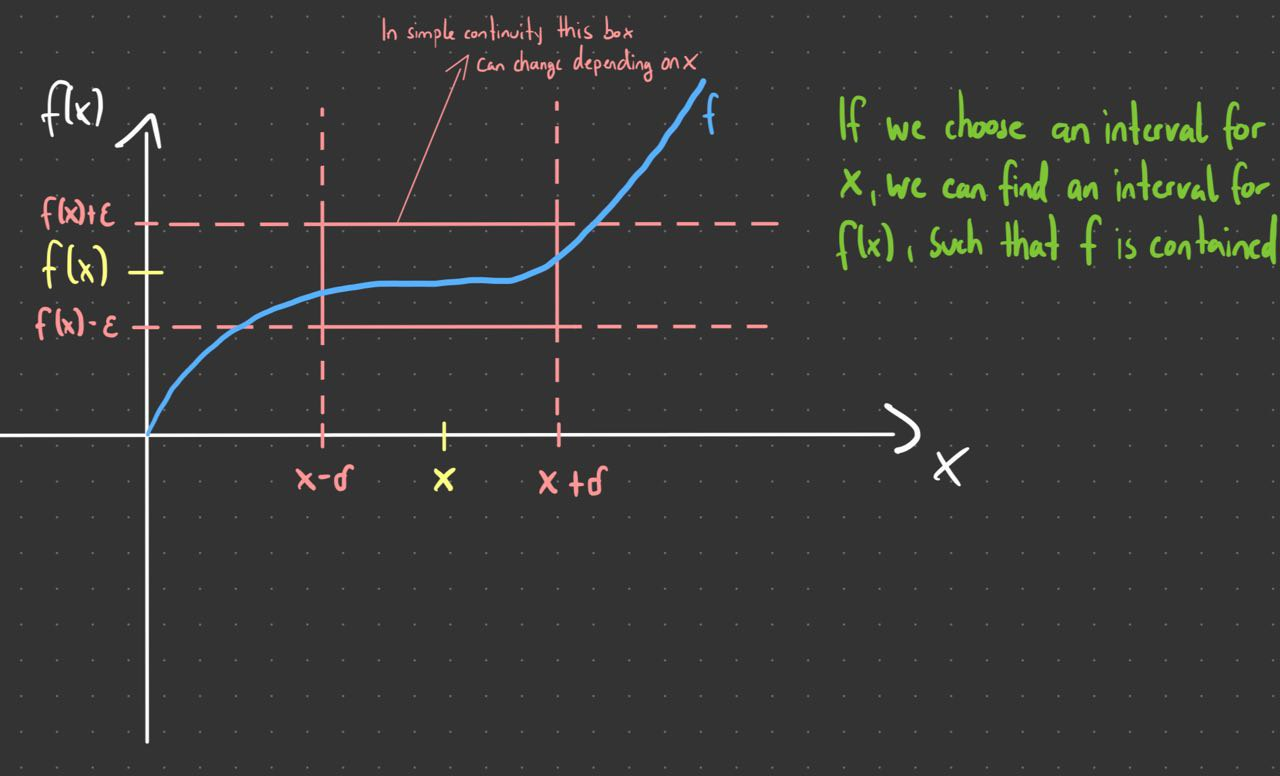 In simple continuity this box
can change depending on x
f(x)
f
If we choose an interval for
x, we can find an interval for
f(x), such that f is contained
f(x)+ε
f(x)
f(x)-ε
x-δ
x
x+δ
x